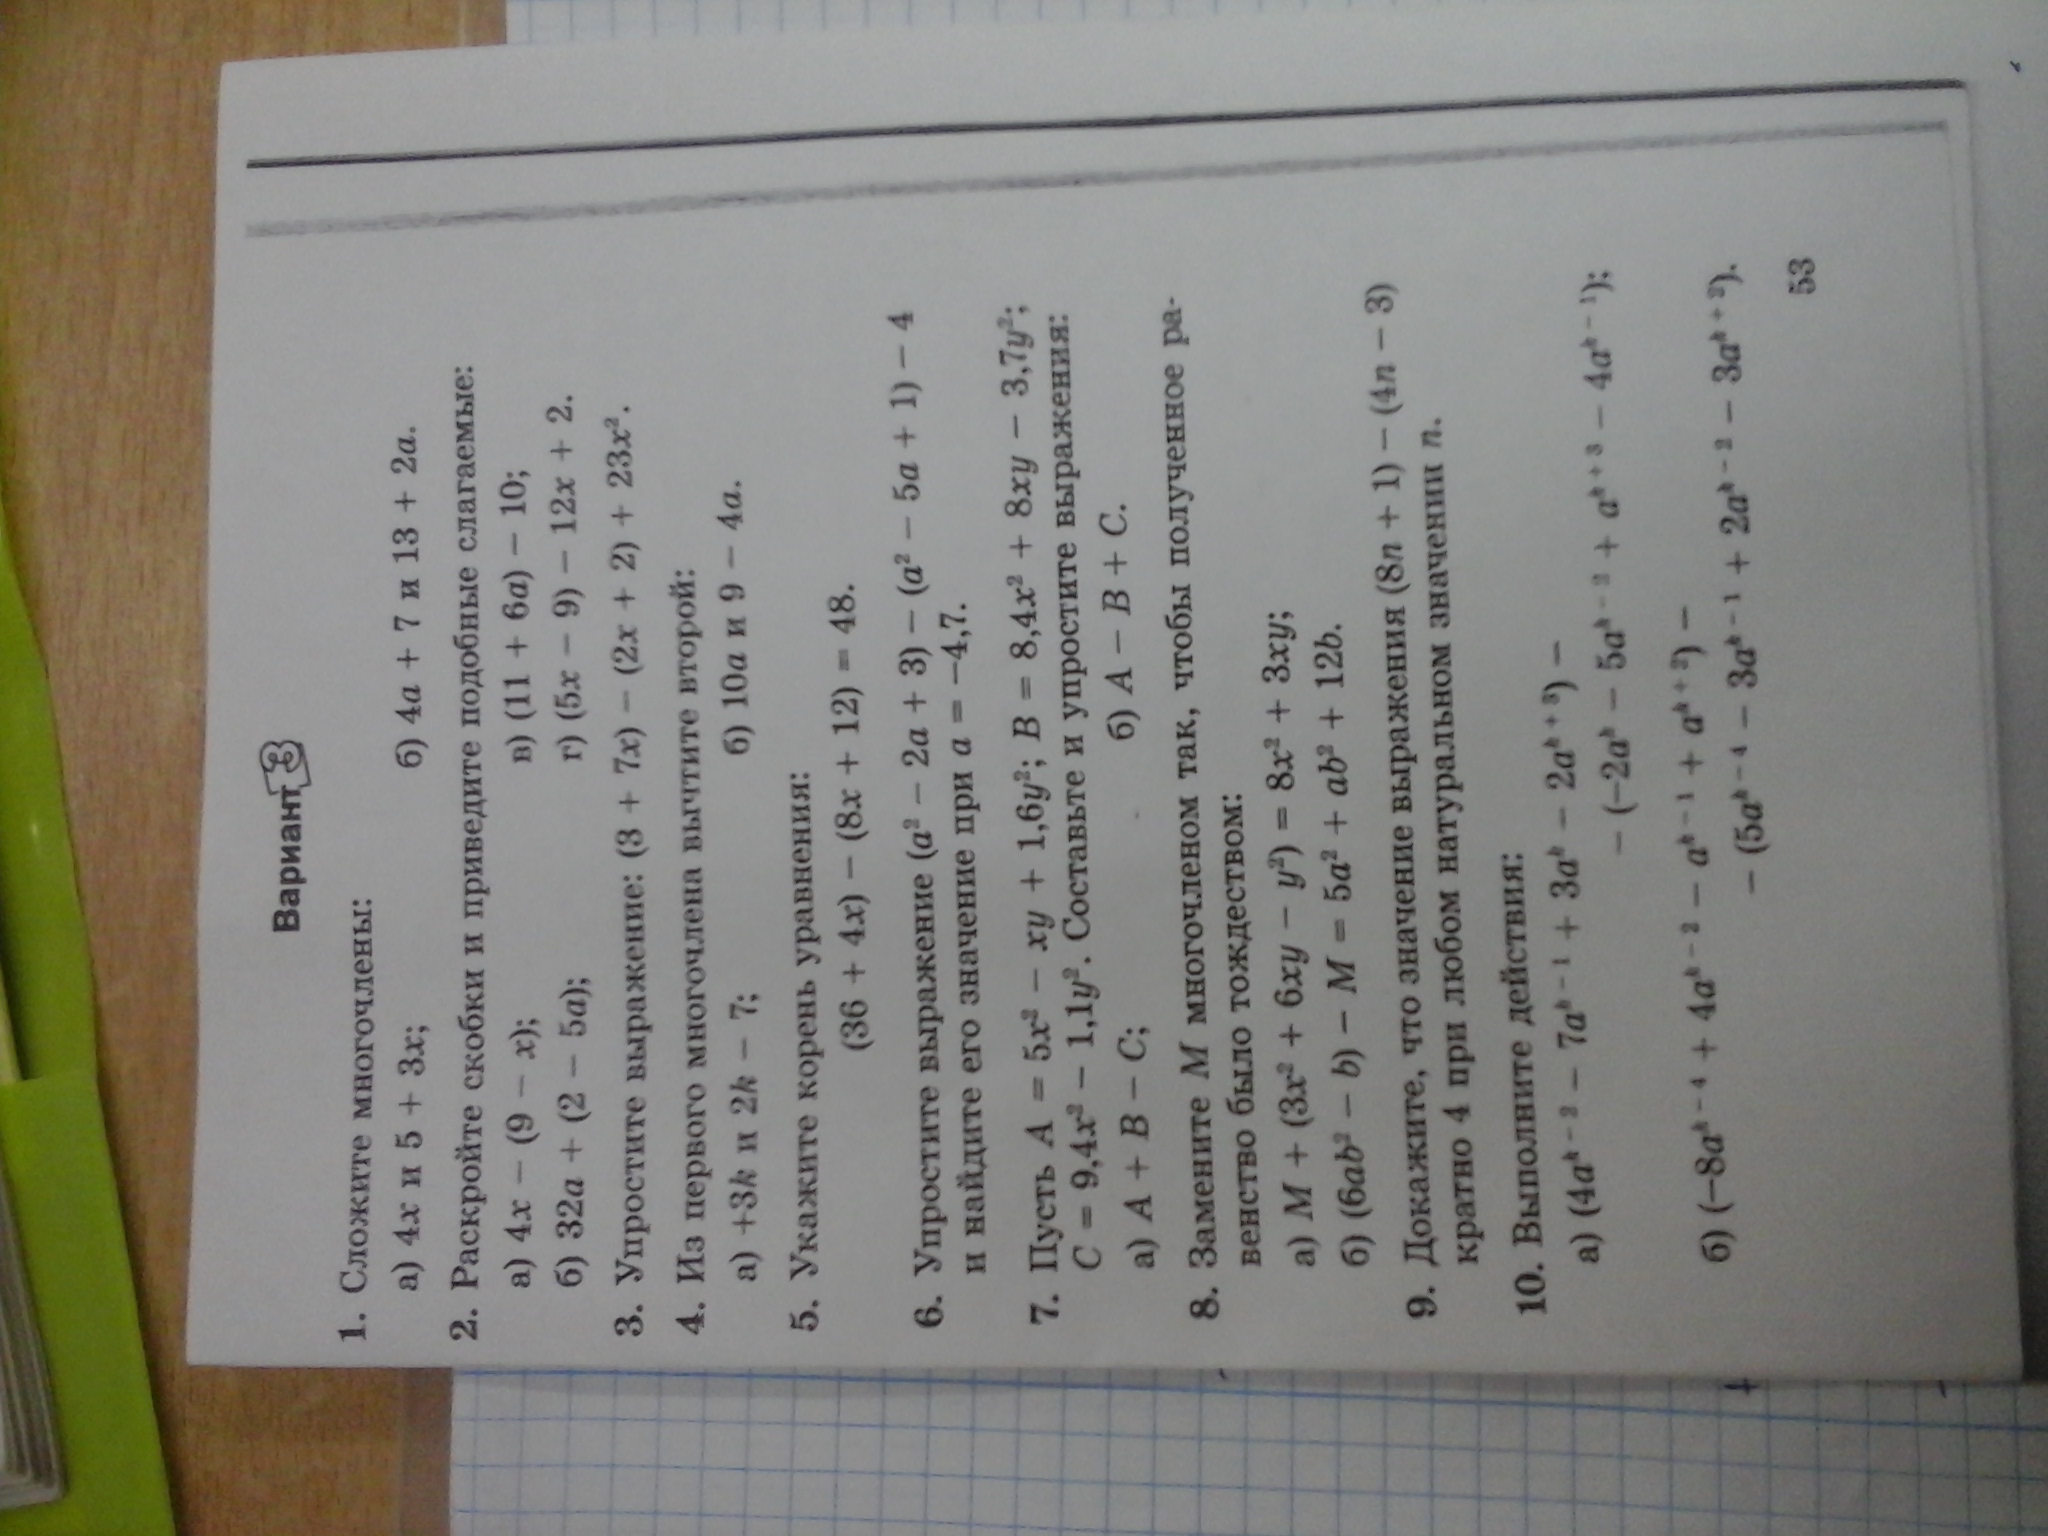 Вариант 3
1. Сложите многочлены:
а) 4x и 5 + 3x; б) 4a + 7 и 13 + 2a.
2. Раскройте скобки и приведите подобные слагаемые:
а) 4x − (9 − x); в) (11 + 6a) − 10;
б) 32a + (2 − 5a); г) (5x − 9) − 12x + 2.
3. Упростите выражение: (3 + 7x) − (2x + 2) + 23x².
4. Из первого многочлена вычтите второй:
а) +3k и 2k − 7; б) 10a и 9 − 4a.
5. Укажите корень уравнения:
(36 + 4x) − (8x + 12) = 48.
6. Упростите выражение (a² − 2a + 3) − (a² − 5a + 1) − 4
и найдите его значение при a = −4,7.
7. Пусть A = 5x² − xy + 1,6y²; B = 8,4x² + 8xy − 3,7y²;
C = 9,4x² − 1,1y². Составьте и упростите выражения:
а) A + B − C; б) A − B + C.
8. Замените M многочленом так, чтобы полученное ра-
венство было тождеством:
а) M + (3x² + 6xy − y²) = 8x² + 3xy;
б) (6ab² − b) − M = 5a² + ab² + 12b.
9. Докажите, что значение выражения (8n + 1) − (4n − 3)
кратно 4 при любом натуральном значении n.
10. Выполните действия:
а) (4aᵏ⁻² − 7aᵏ⁻¹ + 3aᵏ − 2aᵏ⁺³) −
− (−2aᵏ − 5aᵏ⁻² + aᵏ⁺³ − 4aᵏ⁻¹);
б) (−8aᵏ⁻⁴ + 4aᵏ⁻² − aᵏ⁻¹ + aᵏ⁺²) −
− (5aᵏ⁻⁴ − 3aᵏ⁻¹ + 2aᵏ⁻² − 3aᵏ⁺²).
53